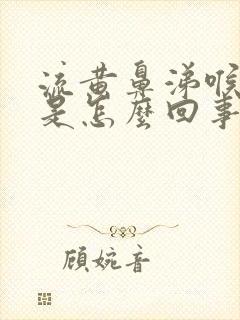 流黄鼻涕喉
是怎麼回事
顾婉音